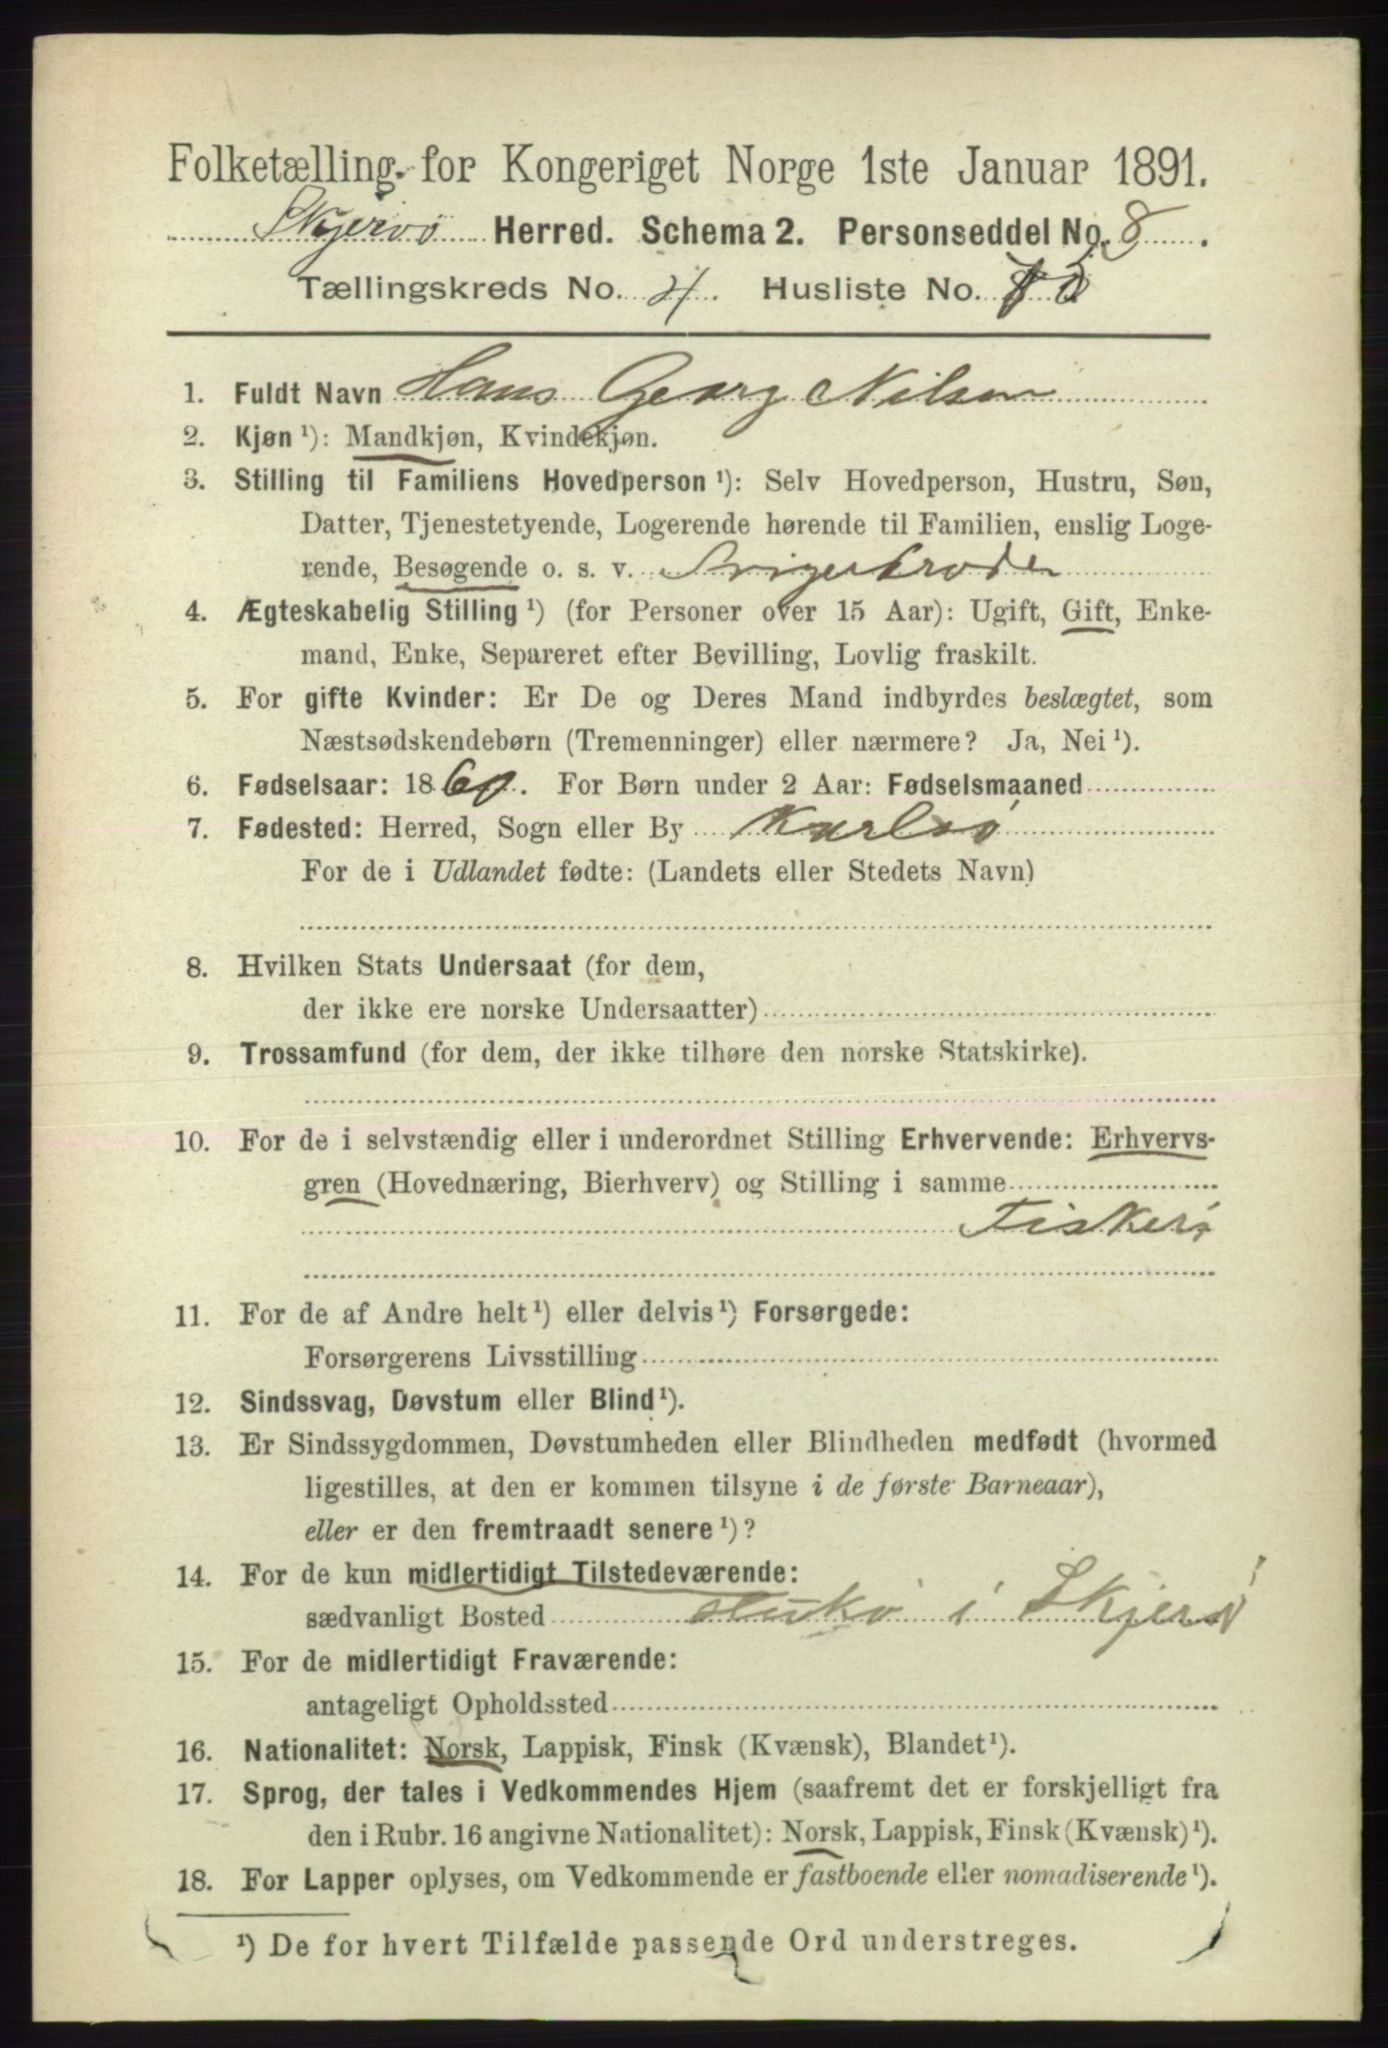 Folketælling for Kongeriget Norge 1ste Januar 1891.
Skjervø Herred. Schema 2. Personseddel No. 8.
Tællingskreds No. 4. Husliste No.
1. Fuldt Navn Hans Georg Nilsen
2. Kjøn ¹): Mandkjøn, Kvindekjøn.
3. Stilling til Familiens Hovedperson ¹): Selv Hovedperson, Hustru, Søn,
Datter, Tjenestetyende, Logerende hørende til Familien, enslig Loge-
rende, Besøgende o. s. v. Svigerbroder
4. Ægteskabelig Stilling ¹) (for Personer over 15 Aar): Ugift, Gift, Enke-
mand, Enke, Separeret efter Bevilling, Lovlig fraskilt.
5. For gifte Kvinder: Er De og Deres Mand indbyrdes beslægtet, som
Næstsødskendebørn (Tremenninger) eller nærmere? Ja, Nei ¹).
6. Fødselsaar: 1860. For Børn under 2 Aar: Fødselsmaaned
7. Fødested: Herred, Sogn eller By Karlsø
For de i Udlandet fødte: (Landets eller Stedets Navn)
8. Hvilken Stats Undersaat (for dem,
der ikke ere norske Undersaatter)
9. Trossamfund (for dem, der ikke tilhøre den norske Statskirke).
10. For de i selvstændig eller i underordnet Stilling Erhvervende: Erhvervs-
gren (Hovednæring, Bierhverv) og Stilling i samme
Fiskeri
11. For de af Andre helt ¹) eller delvis ¹) Forsørgede:
Forsørgerens Livsstilling
12. Sindssvag, Døvstum eller Blind ¹).
13. Er Sindssygdommen, Døvstumheden eller Blindheden medfødt (hvormed
ligestilles, at den er kommen tilsyne i de første Barneaar),
eller er den fremtraadt senere ¹)?
14. For de kun midlertidigt Tilstedeværende:
sædvanligt Bosted i Skjervø
15. For de midlertidigt Fraværende:
antageligt Opholdssted
16. Nationalitet: Norsk, Lappisk, Finsk (Kvænsk), Blandet ¹).
17. Sprog, der tales i Vedkommendes Hjem (saafremt det er forskjelligt fra
den i Rubr. 16 angivne Nationalitet): Norsk, Lappisk, Finsk (Kvænsk) ¹).
18. For Lapper oplyses, om Vedkommende er fastboende eller nomadiserende ¹).
¹) De for hvert Tilfælde passende Ord understreges.